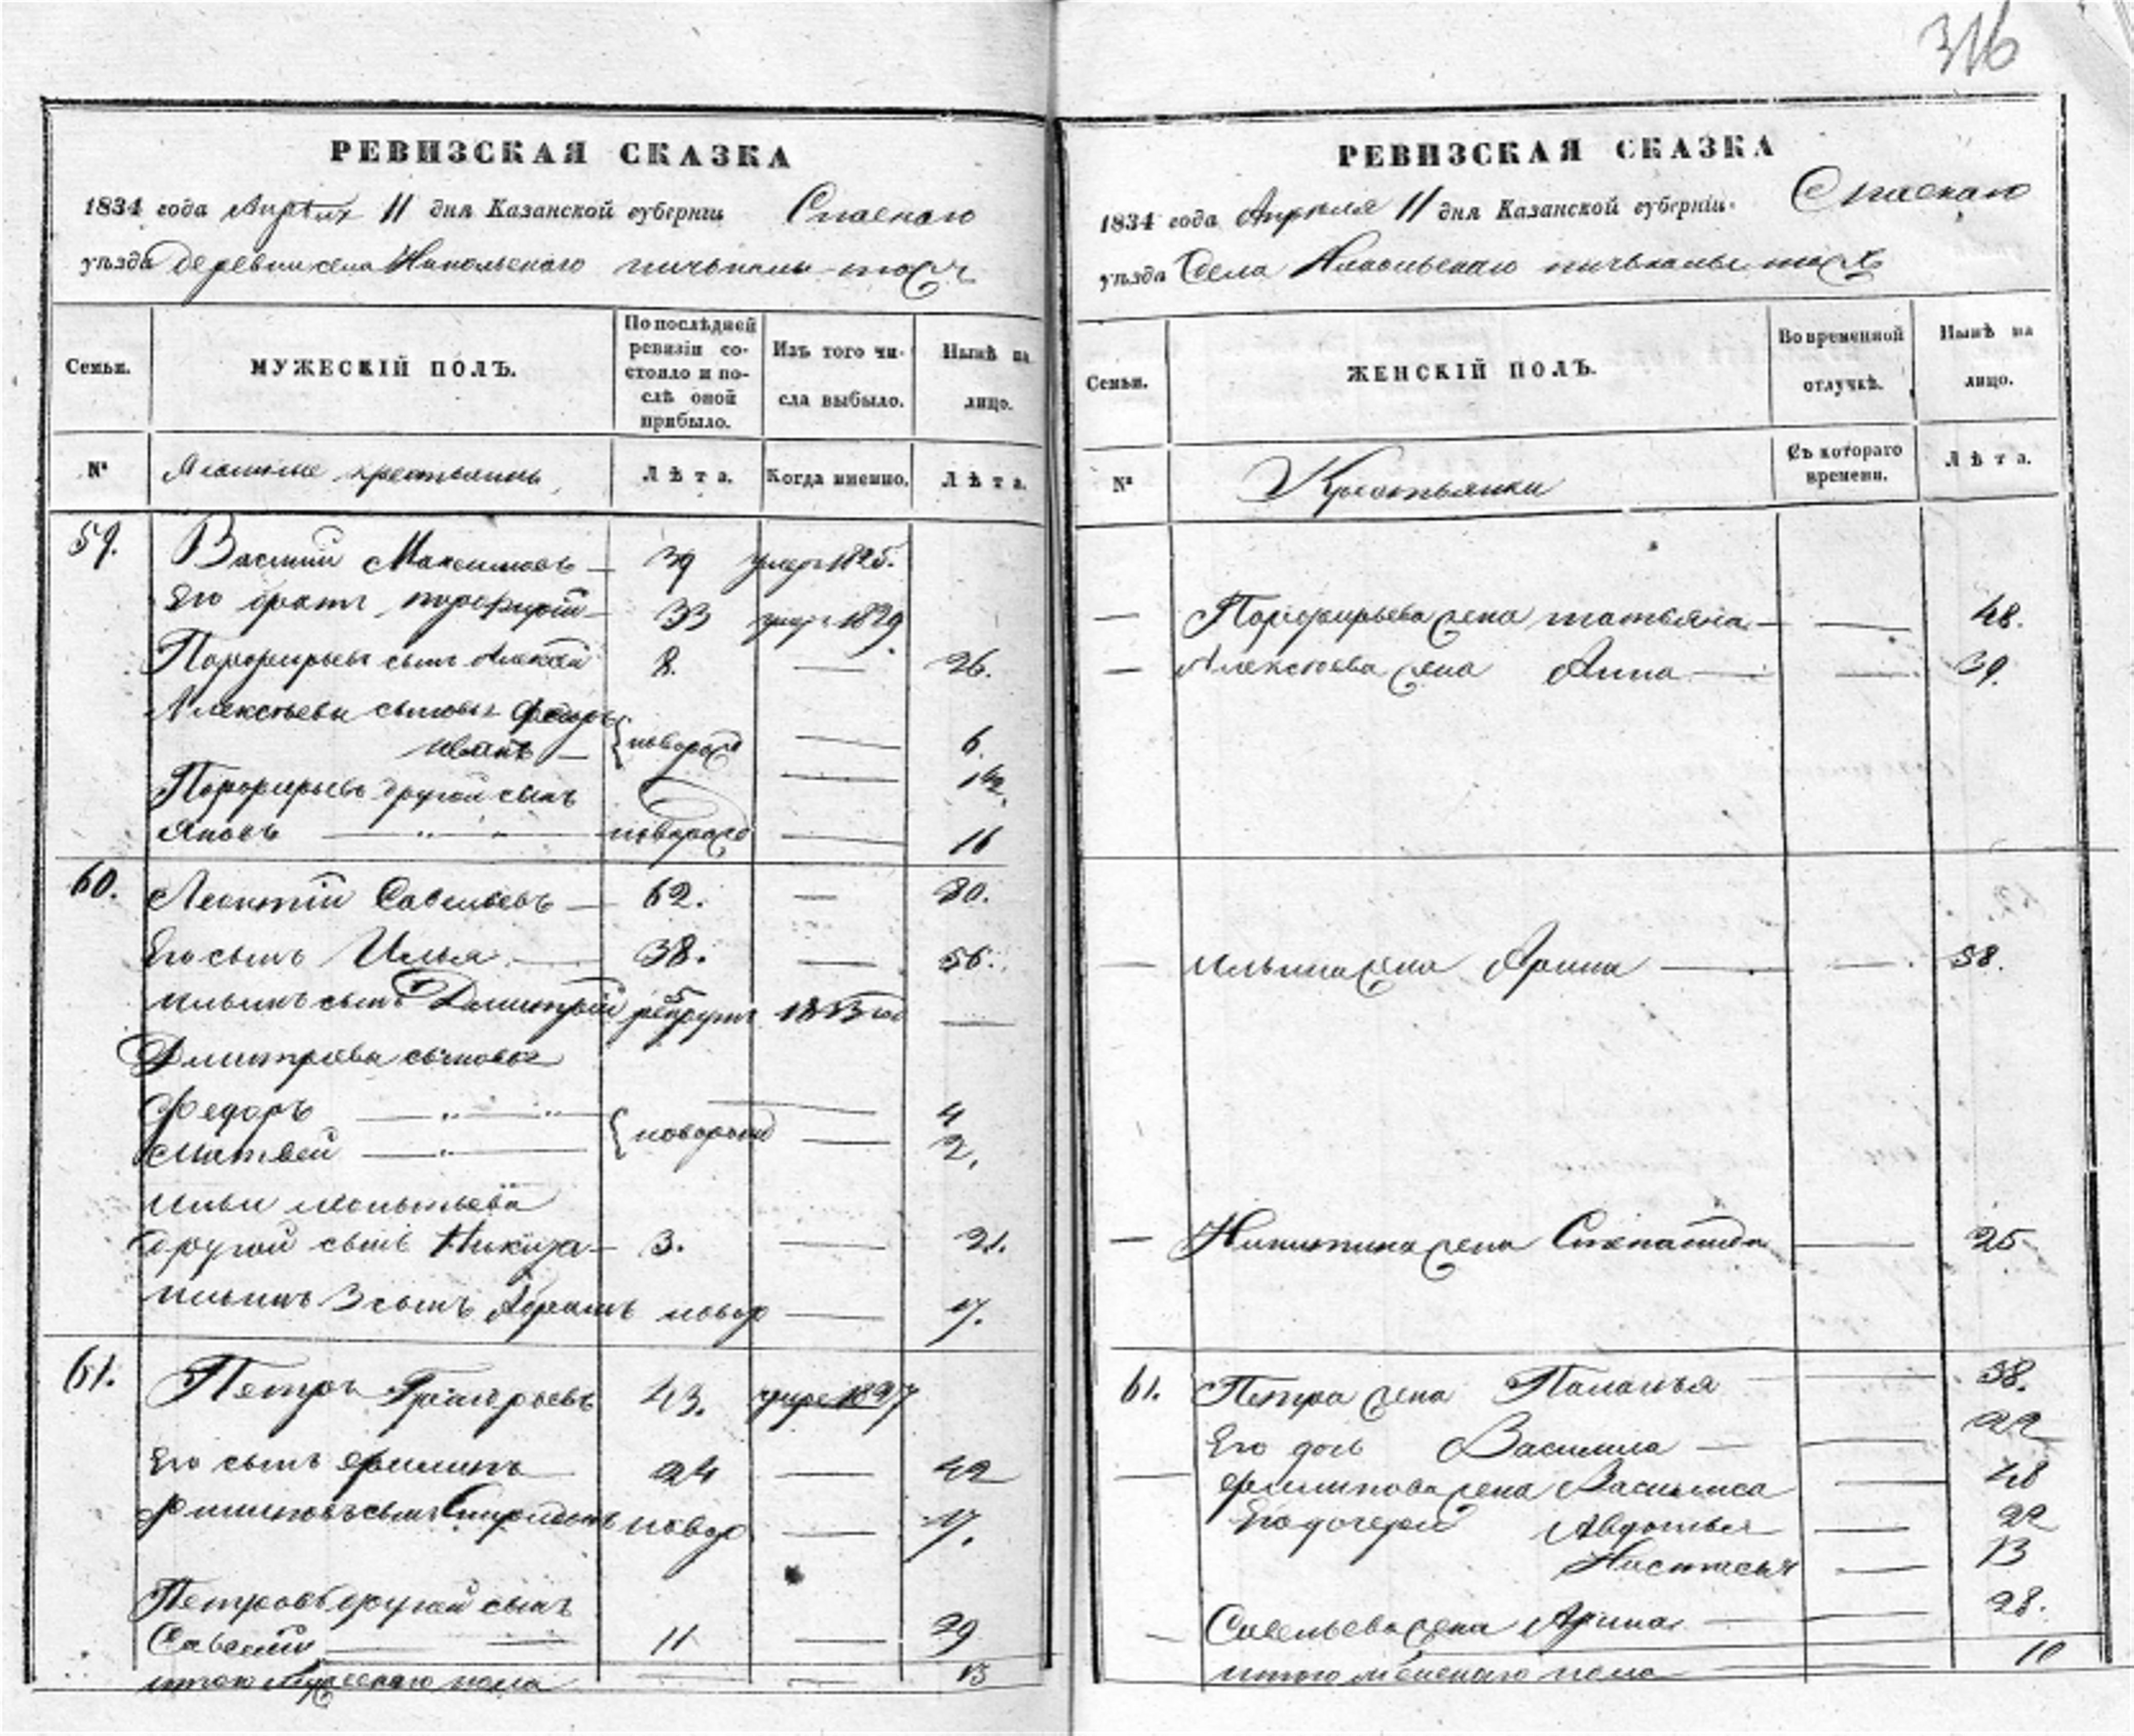 316
РЕВИЗСКАЯ СКАЗКА
1834 года Апреля 11 дня Казанской губернiи Спаскаго
уѣзда деревни села Никольскаго
Семьи. МУЖЕСКIЙ ПОЛЪ. По послѣдней ревизiи состояло и послѣ оной прибыло. Изъ того числа выбыло. Нынѣ на лицо.
№ крестьянъ Лѣта. Когда именно. Лѣта.
59. Василий Максимовъ — 39 умеръ 1825.
Его братъ порфирий — 33 умеръ 1829.
Порфирьевъ сынъ Алексей 8. — 26.
Алексеевы сыновья Федоръ
иванъ — новорож — 6.
Порфирьевъ другой сынъ — 1 1/2.
Яковъ — новорож — 16
60. Леонтiй Савельевъ — 62. — 80.
Его сынъ Илья — 38. — 56.
ильинъ сынъ Дмитрiй 5 рекрутъ 1833 —
Дмитрева сыновья
Федоръ — новорож — 4
Матвей — — 2.
Ильи леонтьева
другой сынъ Никита — 3. — 21.
ильинъ 3 сынъ Абрамъ новор — 17.
61. Петръ Григорьевъ 43. умре 1827
Его сынъ Филипъ 24 — 42
Филиповъ сынъ Спиридонъ новор — 17.
Петровъ другой сынъ
Савелий — 11 — 29
итого мужескаго пола — — 13
РЕВИЗСКАЯ СКАЗКА
1834 года Апреля 11 дня Казанской губернiи. Спаскаго
уѣзда Села Никольскаго
Семьи. ЖЕНСКIЙ ПОЛЪ. Во временной отлучкѣ. Нынѣ на лицо.
№ Крестьянки Съ котораго времени. Лѣта.
— Порфирьева жена татьяна — — 48.
— Алексеева жена Анна — — 39.
— ильина жена Арина — — 58.
— Никитина жена Степанида — 25
61. Петра жена Паланья — 58.
Его дочь Василиса — — 22
— филипова жена Василиса — 48
Его дочери Авдотья — 22
Настасья — 13
— Савельева жена Арина — 28.
итого женскаго пола — 10